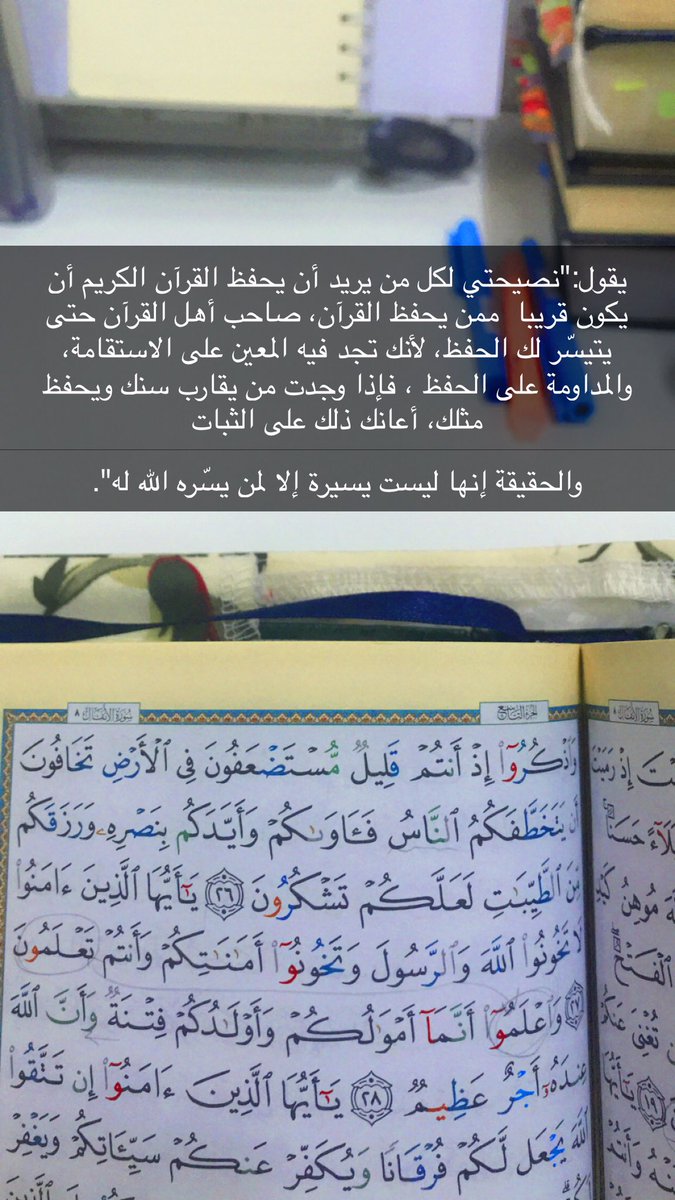 يقول:"نصيحتي لكل من يريد أن يحفظ القرآن الكريم أن
يكون قريبا  ممن يحفظ القرآن، صاحب أهل القرآن حتى
يتيسّر لك الحفظ، لأنك تجد فيه المعين على الاستقامة،
والمداومة على الحفظ ، فإذا وجدت من يقارب سنك ويحفظ
مثلك، أعانك ذلك على الثبات
والحقيقة إنها ليست يسيرة إلا لمن يسّره الله له".
سورة الأنفال ٨
الجزء التاسع
سورة الأنفال ٨
وَٱذۡكُرُوٓاْ إِذۡ أَنتُمۡ قَلِيلٞ مُّسۡتَضۡعَفُونَ فِي ٱلۡأَرۡضِ تَخَافُونَ
أَن يَتَخَطَّفَكُمُ ٱلنَّاسُ فَـَٔاوَىٰكُمۡ وَأَيَّدَكُم بِنَصۡرِهِۦ وَرَزَقَكُم
مِّنَ ٱلطَّيِّبَٰتِ لَعَلَّكُمۡ تَشۡكُرُونَ ٢٦ يَٰٓأَيُّهَا ٱلَّذِينَ ءَامَنُواْ
لَا تَخُونُواْ ٱللَّهَ وَٱلرَّسُولَ وَتَخُونُوٓاْ أَمَٰنَٰتِكُمۡ وَأَنتُمۡ تَعۡلَمُونَ
٢٧ وَٱعۡلَمُوٓاْ أَنَّمَآ أَمۡوَٰلُكُمۡ وَأَوۡلَٰدُكُمۡ فِتۡنَةٞ وَأَنَّ ٱللَّهَ
عِندَهُۥٓ أَجۡرٌ عَظِيمٞ ٢٨ يَٰٓأَيُّهَا ٱلَّذِينَ ءَامَنُوٓاْ إِن تَتَّقُواْ
ٱللَّهَ يَجۡعَل لَّكُمۡ فُرۡقَانٗا وَيُكَفِّرۡ عَنكُمۡ سَيِّـَٔاتِكُمۡ وَيَغۡفِرۡ